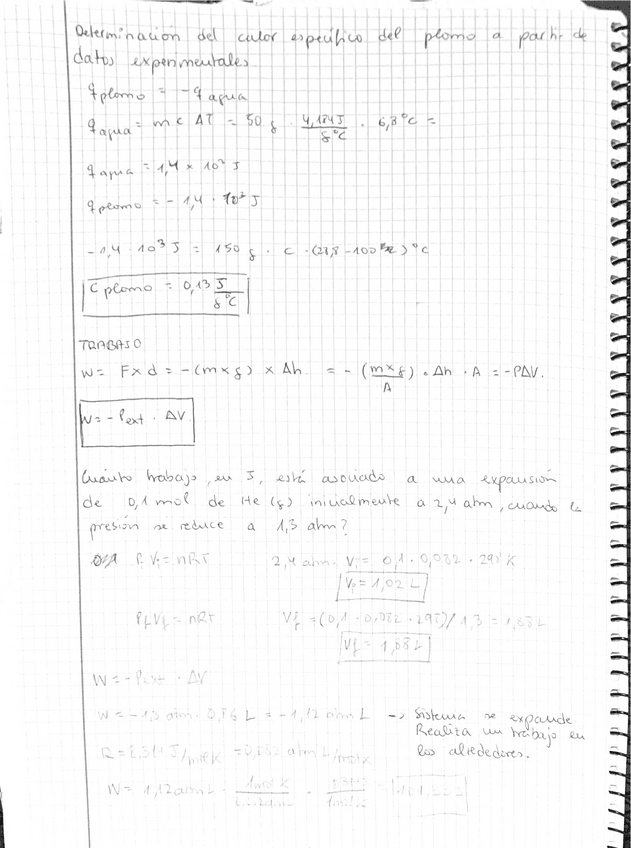 Determinación del calor específico del plomo a partir de
datos experimentales
q plomo = - q agua
q agua = m c ΔT = 50 g · 4,184 J / g °C · 6,8 °C =
q agua = 1,4 × 10³ J
q plomo = - 1,4 · 10³ J
-1,4 · 10³ J = 150 g · c · (28,8 - 100) °C
c plomo = 0,13 J / g °C
TRABAJO
W = F x d = -(m x g) x Δh = - (m x g / A) · Δh · A = -PΔV.
W = - Pext · ΔV
Cuánto trabajo, en J, está asociado a una expansión
de 0,1 mol de He (g) inicialmente a 2,4 atm, cuando la
presión se reduce a 1,3 atm?
Pi Vi = nRT 2,4 atm · Vi = 0,1 · 0,082 · 298 K
Vi = 1,02 L
Pf Vf = nRT Vf = (0,1 · 0,082 · 298) / 1,3 = 1,88 L
Vf = 1,88 L
W = - Pext · ΔV
W = -1,3 atm · 0,86 L = -1,12 atm L → Sistema se expande
Realiza un trabajo en
los alrededores.
R = 8,314 J/mol K = 0,082 atm L/mol K
W = 1,12 atm L · 1 mol K